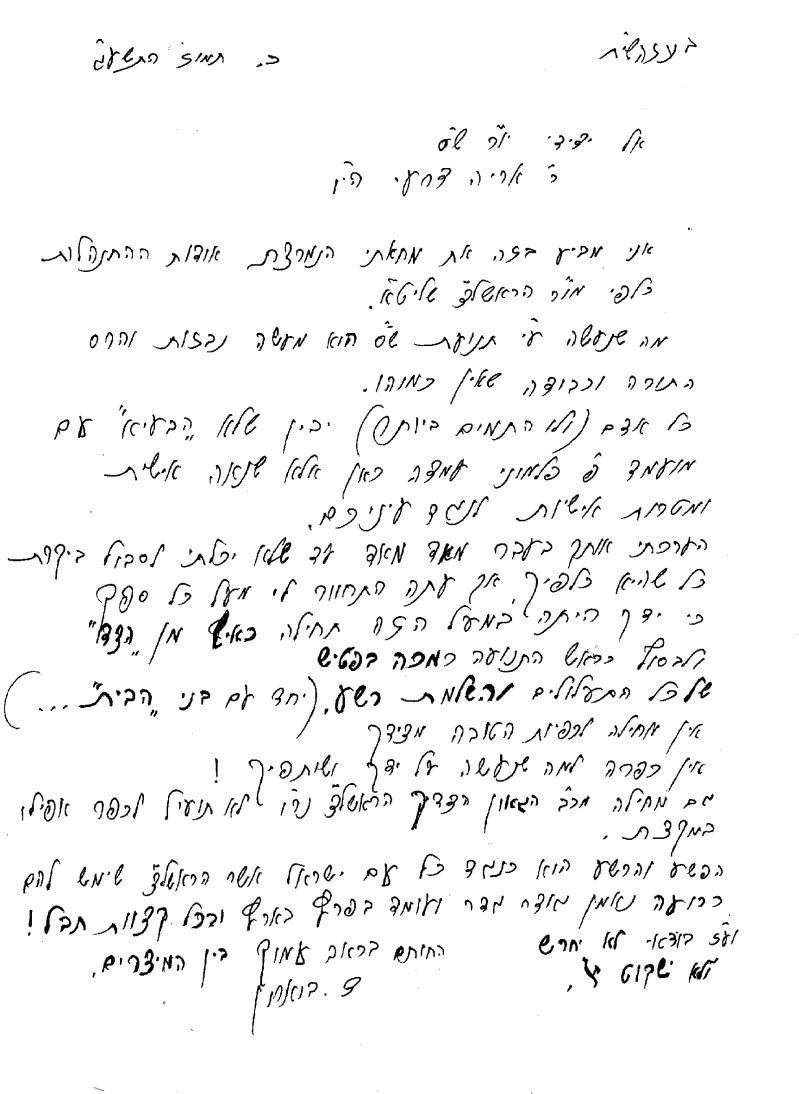 בעזהשי"ת
כ. תמוז התשע"ג
אל ידידי יו"ר ש"ס
ר' אריה דרעי הי"ו
אני מביע בזה את מחאתי הנמרצת אודות ההתנהלות
כלפי מו"ר הראשל"צ שליט"א.
מה שנעשה ע"י תנועת ש"ס הוא מעשה נבזות והרס
התורה וכבודה שאין כמוהו.
כל אדם (ולו התמים ביותר) יבין שלא "הבעיא" עם
מועמד פ' פלמוני עמדה כאן אלא שנאה אישית
ומטרות אישיות לנגד עיניכם.
הערכתי אותך בעבר מאד מאד עד שלא יכלתי לסבול ביקרת
כל שהיא כלפיך, אך עתה התחוור לי מעל כל ספק
כי ידך היתה במעל הזה תחילה כאיש מן "הצד"
ולבסוף כראש התנועה כמכה בפטיש
של כל התעלולים והשלמת רשע, (יחד עם בני "הבית"...)
אין מחילה לכפיות הטובה מצידך
אין כפרה למה שנעשה על ידך ושיתפיך !
גם מחילה מכ"ב הגאון הצדיק הראשל"צ נר"ו לא תועיל לכפר אפילו
במקצת.
הפשע והרשע הוא כנגד כל עם ישראל אשר הראשל"צ שימש להם
כרועה נאמן גודר גדר ועומד בפרץ בארץ ובכל קצוות תבל !
וע"ז בודאי לא יחרש
ולא ישקוט
החותם בכאב עמוק בין המיצרים.
ד. בוארון